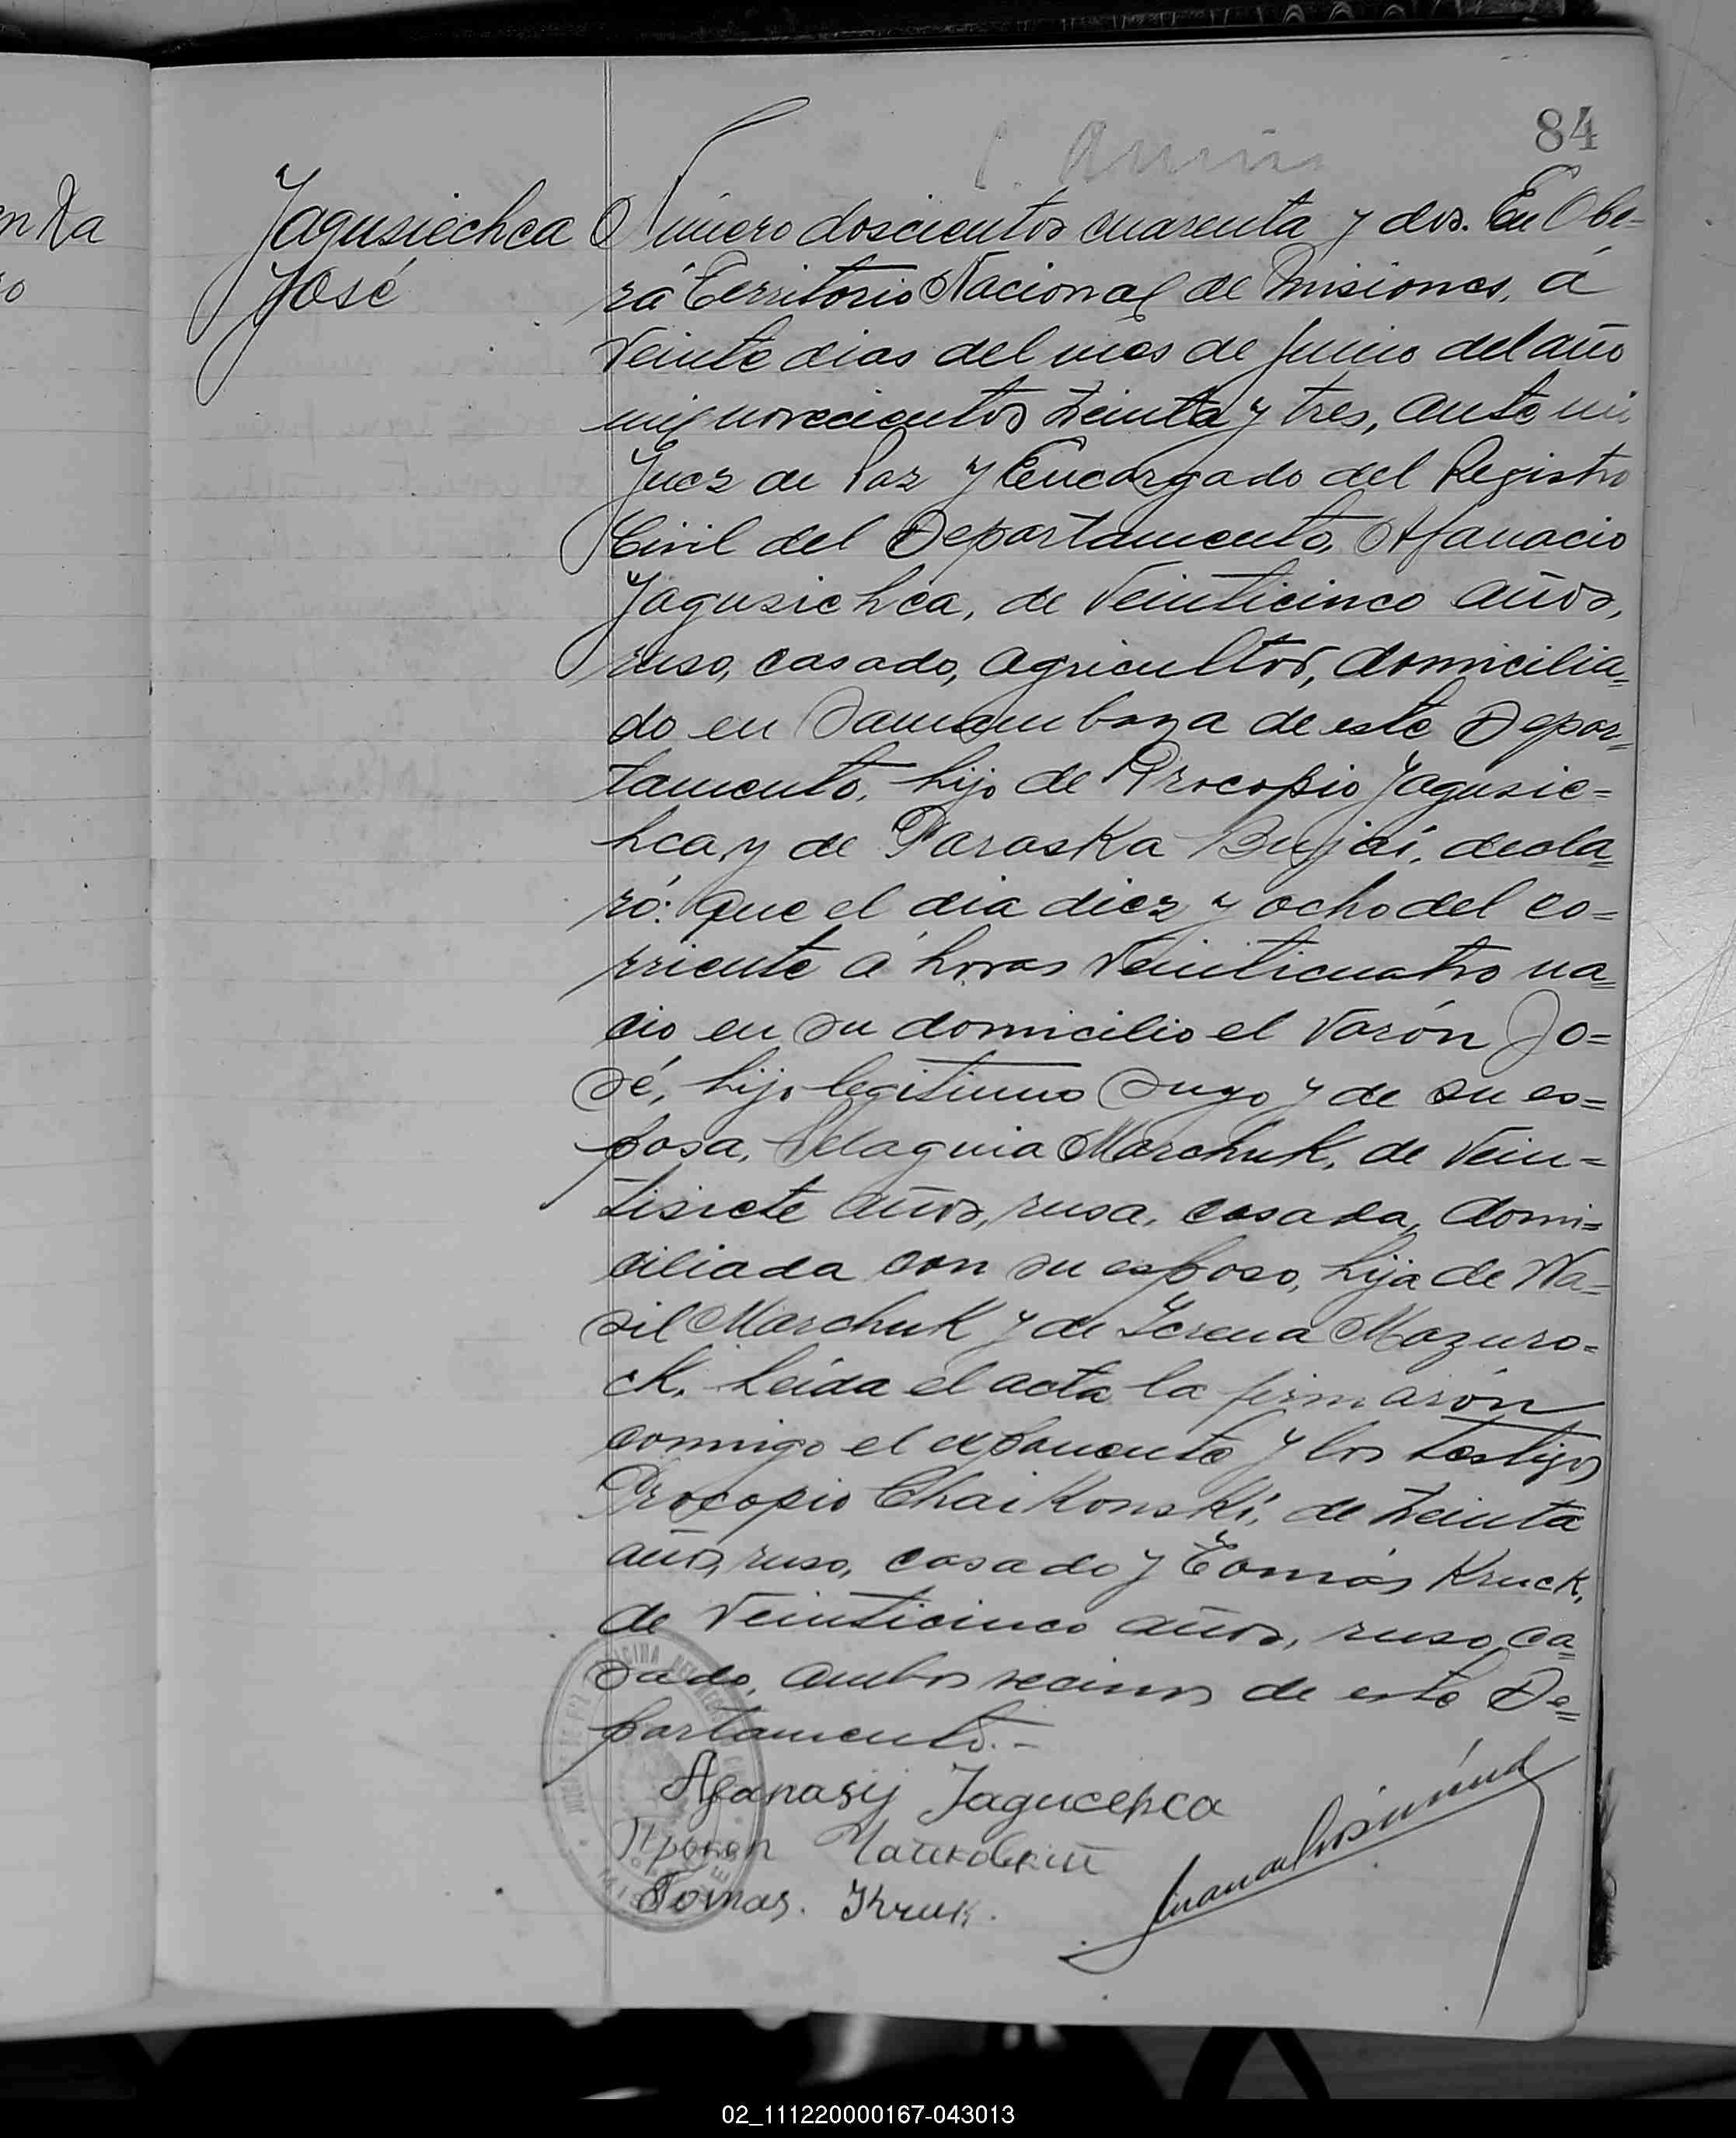 84
Jagusiechca
José
en ka
Número doscientos cuarenta y dos. En Obe-
rá Territorio Nacional de Misiones, á
veinte dias del mes de Junio del año
mil novecientos treinta y tres, ante mi
Juez de Paz y Encargado del Registro
Civil del Departamento, Afanacio
Jagusiehca, de veinticinco años,
ruso, casado, agricultor, domicilia=
do en Samambaya de este Depar=
tamento, hijo de Procopio Jagusie=
hca, y de Paraska Bujai, decla=
ró: Que el dia diez y ocho del co=
rriente á horas veinticuatro na=
cio en su domicilio el varón Jo=
sé, hijo legitimo suyo y de su es=
posa, Pelaguia Marchuk, de vein=
tisiete años, rusa, casada, domi=
ciliada con su esposo, hija de Wa=
sil Marchuk y de Irena Mazuro=
ck. Leída el acta la firmarón
conmigo el exponente y los testigos
Procopio Chaikonski, de treinta
años, ruso, casado y Tomás Kruck,
de veinticinco años, ruso, ca=
sado, ambos vecinos de este De=
partamento.-
Afanasij Jagucehca
Прокоп Чайковский
Tomas. Kruk.
02_111220000167-043013